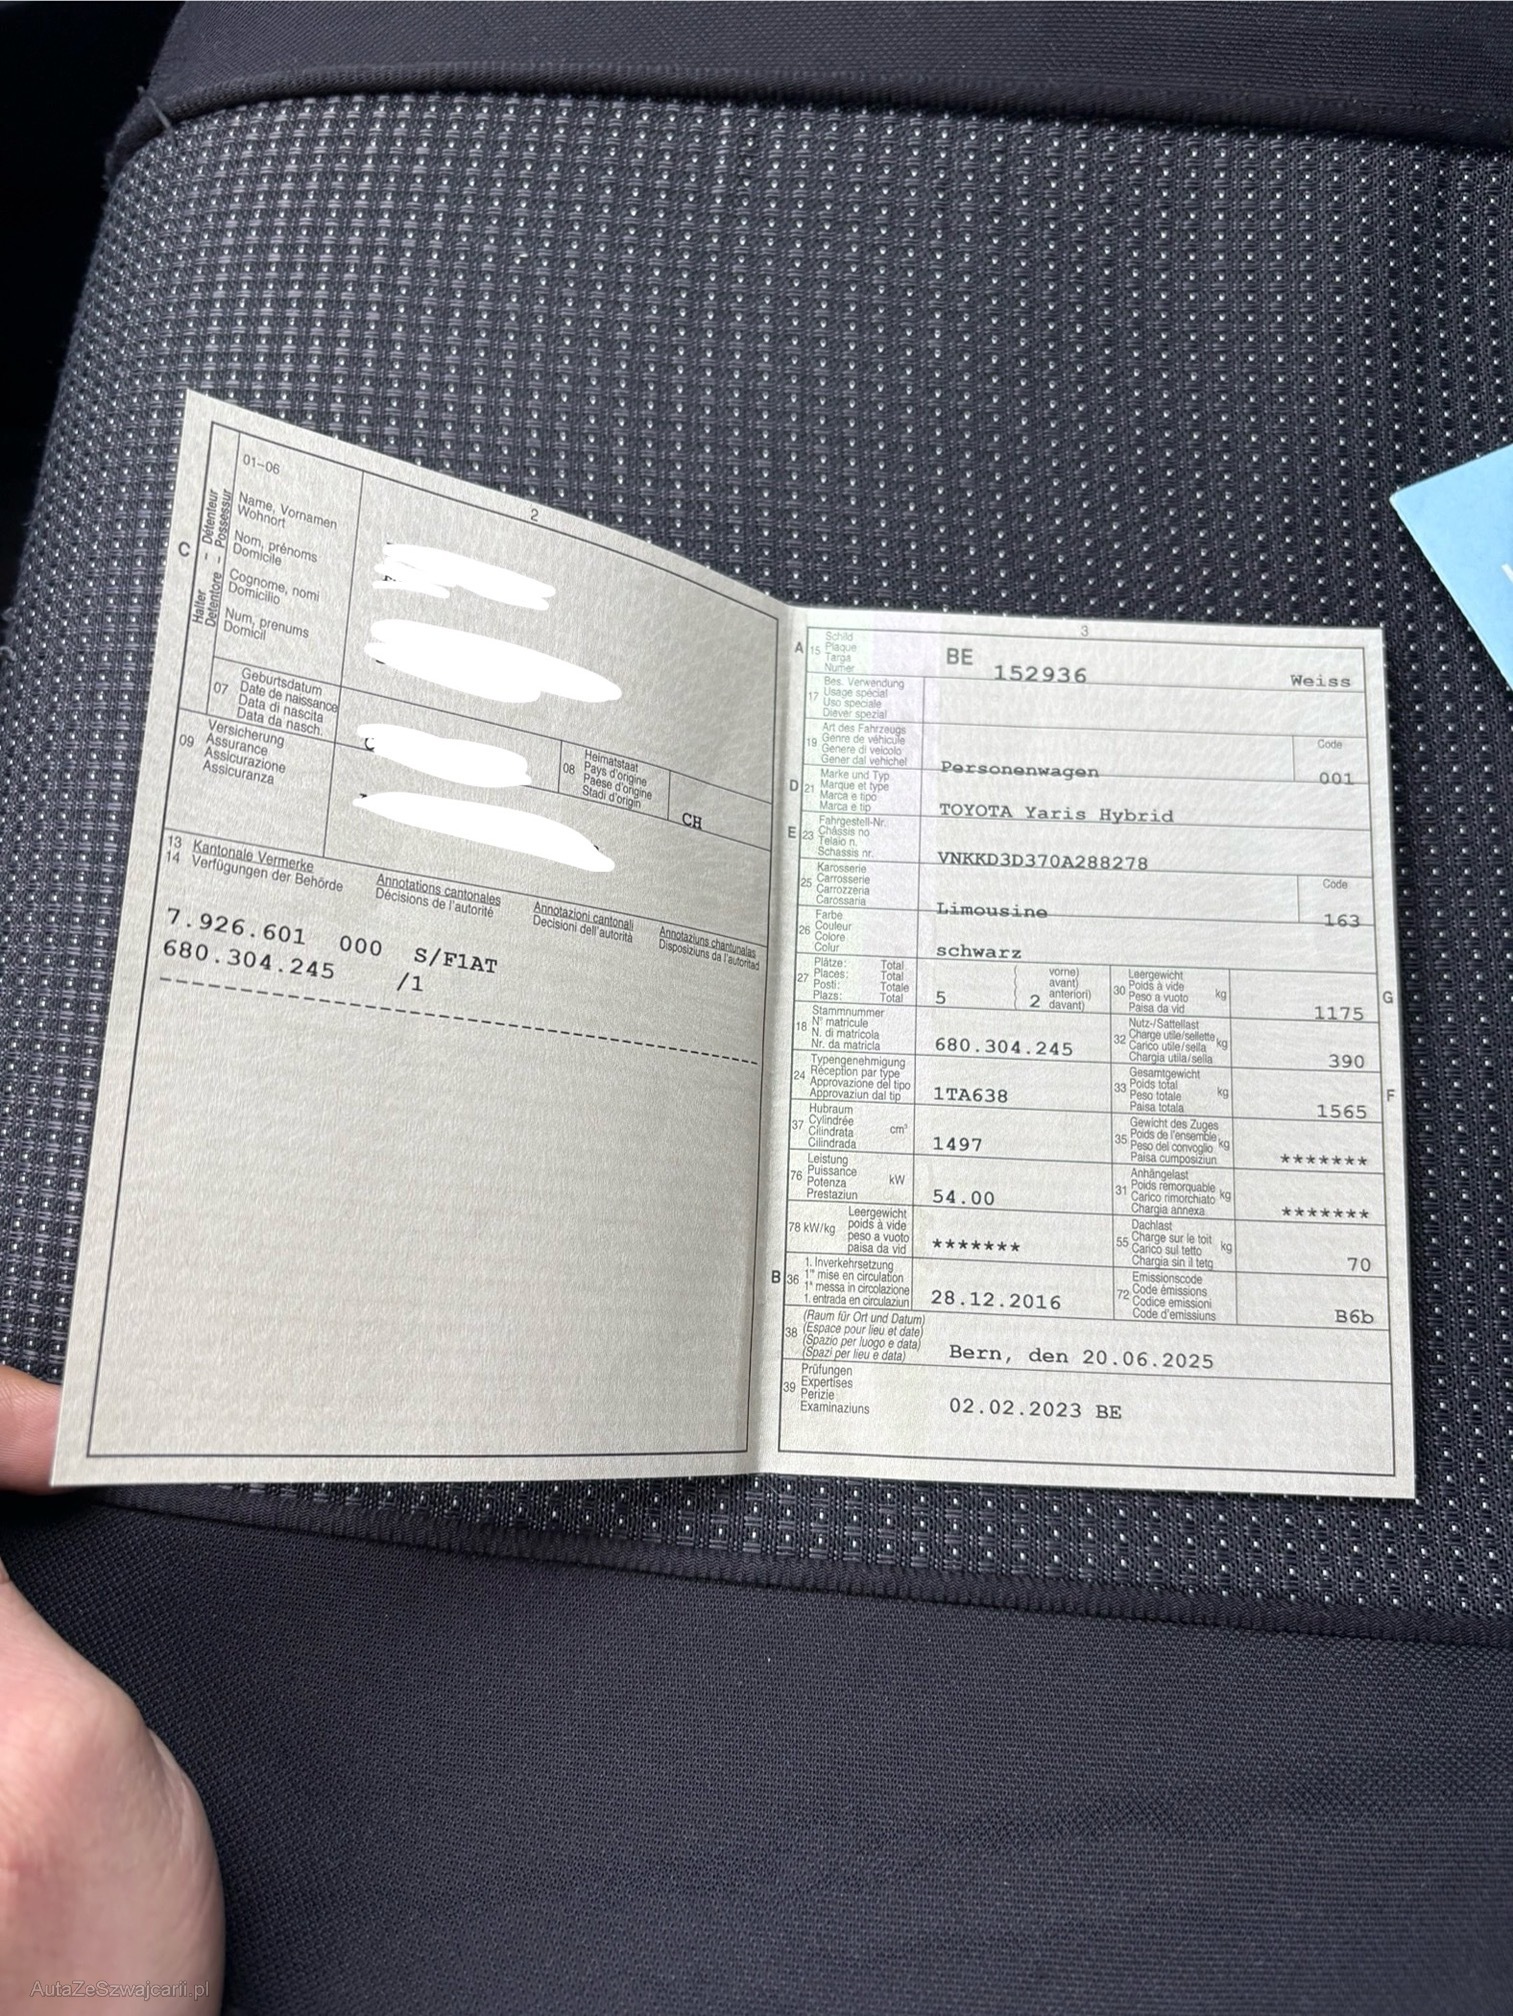 2
01-06
C
Halter - Détenteur
Detentore - Possessur
Name, Vornamen
Wohnort
Nom, prénoms
Domicile
Cognome, nomi
Domicilio
Num, prenums
Domicil
07
Geburtsdatum
Date de naissance
Data di nascita
Data da nasch.
08
Heimatstaat
Pays d'origine
Paese d'origine
Stadi d'origin
CH
09
Versicherung
Assurance
Assicurazione
Assicuranza
13 Kantonale Vermerke
14 Verfügungen der Behörde
Annotations cantonales
Décisions de l'autorité
Annotazioni cantonali
Decisioni dell'autorità
Annotaziuns chantunalas
Disposiziuns da l'autoritad
7.926.601 000 S/F1AT
680.304.245 /1
3
A 15 Schild
Plaque
Targa
Numer
BE 152936 Weiss
17 Bes. Verwendung
Usage spécial
Uso speciale
Diever spezial
19 Art des Fahrzeugs
Genre de véhicule
Genere di veicolo
Gener dal vehichel
Personenwagen
Code
001
D 21 Marke und Typ
Marque et type
Marca e tipo
Marca e tip
TOYOTA Yaris Hybrid
E 23 Fahrgestell-Nr.
Châssis no
Telaio n.
Schassis nr.
VNKKD3D370A288278
25 Karosserie
Carrosserie
Carrozzeria
Carossaria
Limousine
Code
163
26 Farbe
Couleur
Colore
Colur
schwarz
27 Plätze: Total
Places: Total
Posti: Totale
Plazs: Total
5 ( 2 vorne)
avant)
anteriori)
davant)
30 Leergewicht
Poids à vide
Peso a vuoto
Paisa da vid
kg
1175
G
18 Stammnummer
N° matricule
N. di matricola
Nr. da matricla
680.304.245
32 Nutz-/Sattellast
Charge utile/sellette
Carico utile/sella
Chargia utila/sella
kg
390
24 Typengenehmigung
Réception par type
Approvazione del tipo
Approvaziun dal tip
1TA638
33 Gesamtgewicht
Poids total
Peso totale
Paisa totala
kg
1565
F
37 Hubraum
Cylindrée
Cilindrata
Cilindrada
cm³
1497
35 Gewicht des Zuges
Poids de l'ensemble
Peso del convoglio
Paisa cumposiziun
kg
*******
76 Leistung
Puissance
Potenza
Prestaziun
kW
54.00
31 Anhängelast
Poids remorquable
Carico rimorchiato
Chargia annexa
kg
*******
78 kW/kg Leergewicht
poids à vide
peso a vuoto
paisa da vid
*******
55 Dachlast
Charge sur le toit
Carico sul tetto
Chargia sin il tetg
kg
70
B 36 1. Inverkehrsetzung
1re mise en circulation
1a messa in circolazione
1. entrada en circulaziun
28.12.2016
72 Emissionscode
Code émissions
Codice emissioni
Code d'emissiuns
B6b
38 (Raum für Ort und Datum)
(Espace pour lieu et date)
(Spazio per luogo e data)
(Spazi per lieu e data)
Bern, den 20.06.2025
39 Prüfungen
Expertises
Perizie
Examinaziuns
02.02.2023 BE
AutaZeSzwajcarii.pl